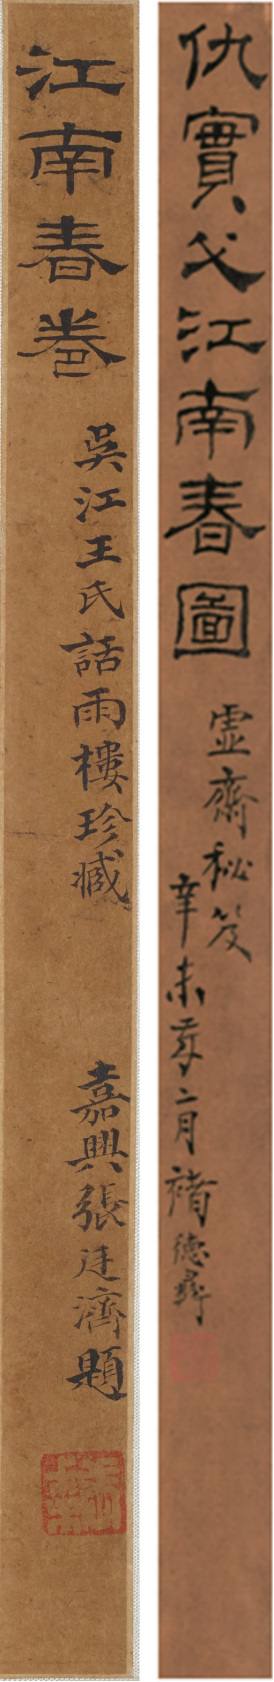 江南春卷
吳江王氏話雨樓珍臧
嘉興張廷濟題
仇實父江南春圖
虛齋秘笈
辛未年二月褚德彝